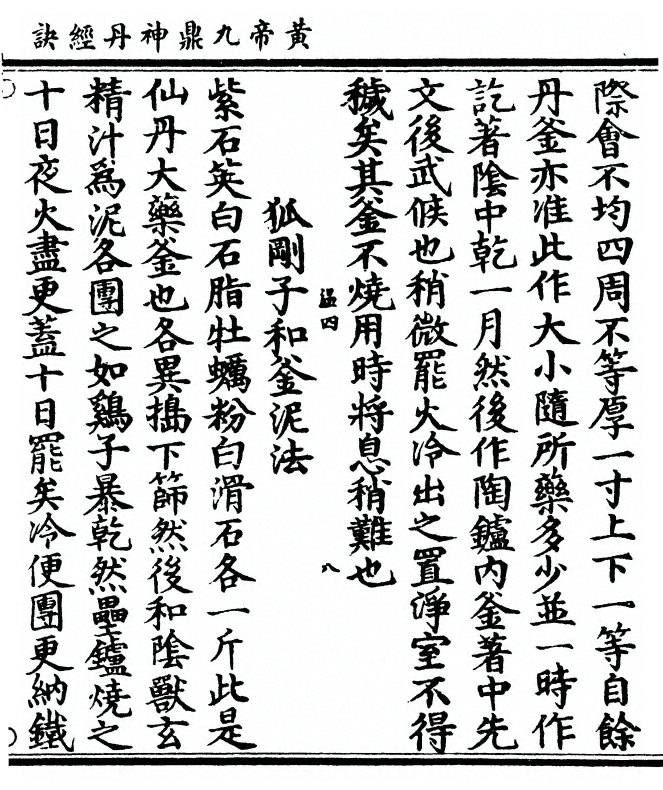 黃帝九鼎神丹經訣
際會不均四周不等厚一寸上下一等自餘
丹釜亦准此作大小隨所藥多少並一時作
訖著陰中乾一月然後作陶鑪內釜著中先
文後武候也稍微罷火冷出之置淨室不得
穢矣其釜不燒用時將息稍難也
溫四
八
狐剛子和釜泥法
紫石英白石脂牡蠣粉白滑石各一斤此是
仙丹大藥釜也各異搗下篩然後和陰獸玄
精汁爲泥各團之如鷄子暴乾然壘鑪燒之
十日夜火盡更蓋十日罷矣冷便團更納鐵